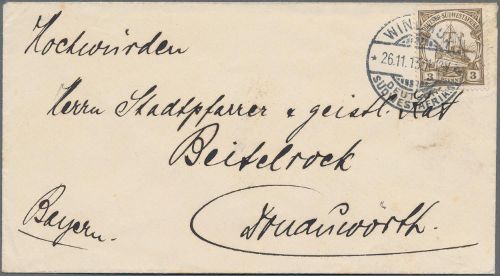 Hochwürden
Herrn Stadtpfarrer u. geistl. Rat
Beitelrock
Donauwörth.
Bayern.
WIN
26.11.13
DEUTSCH
SÜDWESTAFRIKA
SÜDWESTAFRIKA
3 3